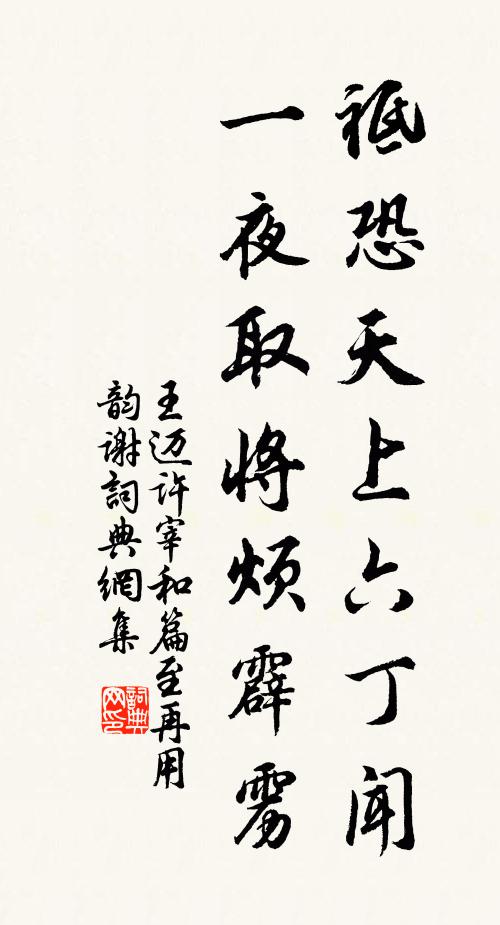 祗恐天上六丁闻
一夜取将烦霹雳
王迈许宰和篇至再用
韵谢詞典網集
詞典
网印